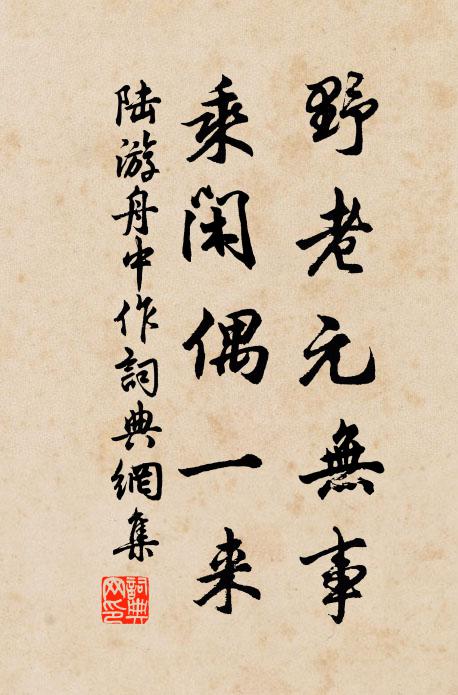 野老元無事
乘闲偶一来
陆游舟中作詞典網集
詞典
网印